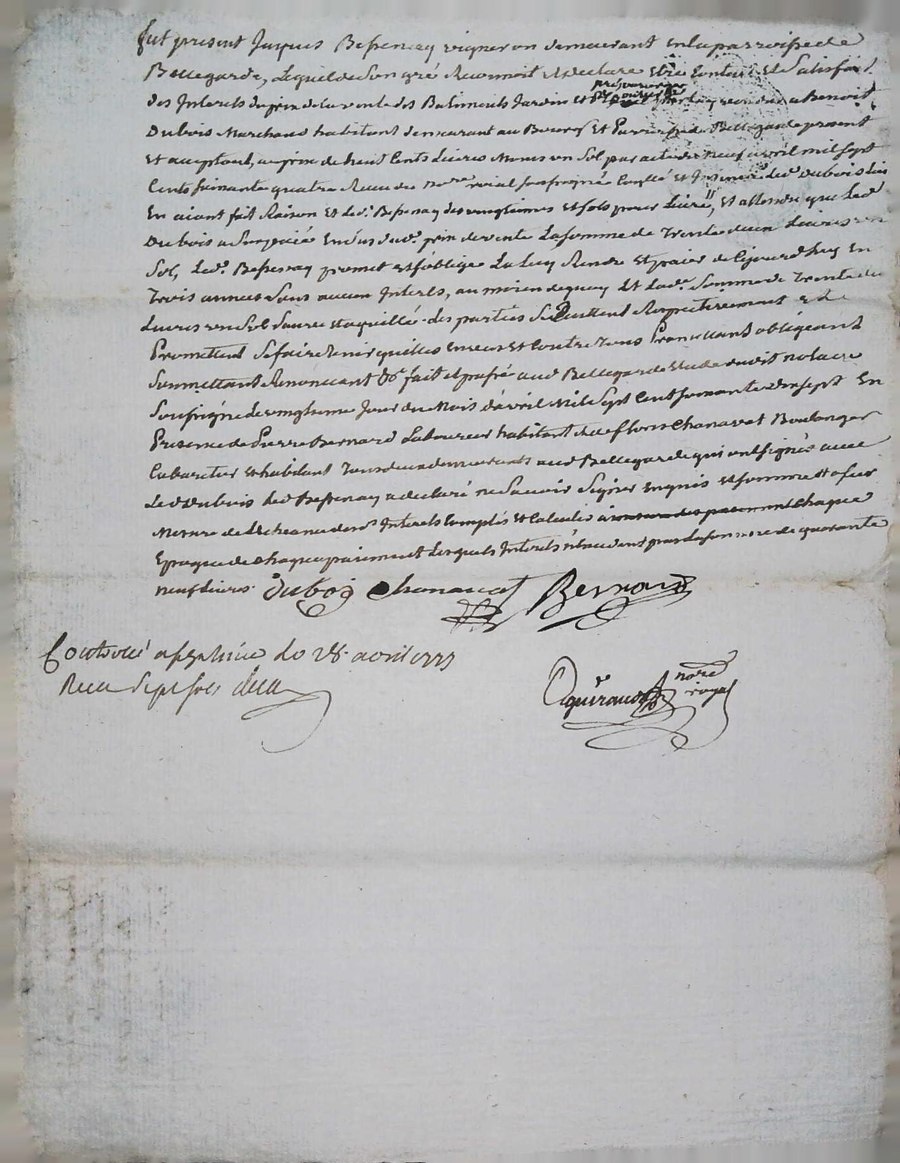 fut present Jaques Bessenay vigneron demeurant en la parroisse de
Bellegarde, Lequel de son gré Reconnoit et declare etre Contant et Satisfait
des Interets du prix de la vente des Batiments Jardin et a Benoit
Dubois Marchand habitant demeurant au Bourg et Parroisse de Bellegarde present
et acceptant, au prix de huit Cents Livres Moins un Sol par acte du neuf avril mil sept
Cents soixante quatre Recu du nore roial soussigné Controllé et Insinué led. dubois Lui
En aiant fait Raison et led. Bessenay des vingtiemes et sols pour Livre, et attendu que Led.
Dubois a En sus dud. prix de vente La somme de Trente deux Livres un
Sol, Led. Bessenay promet et soblige La Luy Rendre et paier de Cejourdhuy En
Trois années Sans aucun Interets, au moien dequoy Et Lad. Somme de Trente deux
Livres un Sol Sauve et aquillé des parties Se Quittent Respectivement et
Promettent Se faire tenir quittes Envers et Contre Tous Promettant obligeant
Soumettant Renoncant &c. fait et passé aud. Bellegarde Etude dudit notaire
Soussigné Le vingtieme Jour du Mois davril Mil Sept Cent soixante dix sept En
Presence de Pierre Bernard Laboureur habitant de Chanavat Boulanger
Cabaretier et habitant Tous deux demeurants aud. Bellegarde qui ont signés avec
Led. Dubois led. Bessenay a declaré ne Savoir Signer Enquis et sommé et a fur
Mesure de Lecheance des d. Interets Comptés et Calculés a mesure des paiement Chaque
Epoque de Chaque paiement Lesquels Interets la somme de quarante
neuf Livres. Dubois Chanavat Bernard
Controllé a le 28. avril 1777
Recu Sept sols
nore
royal